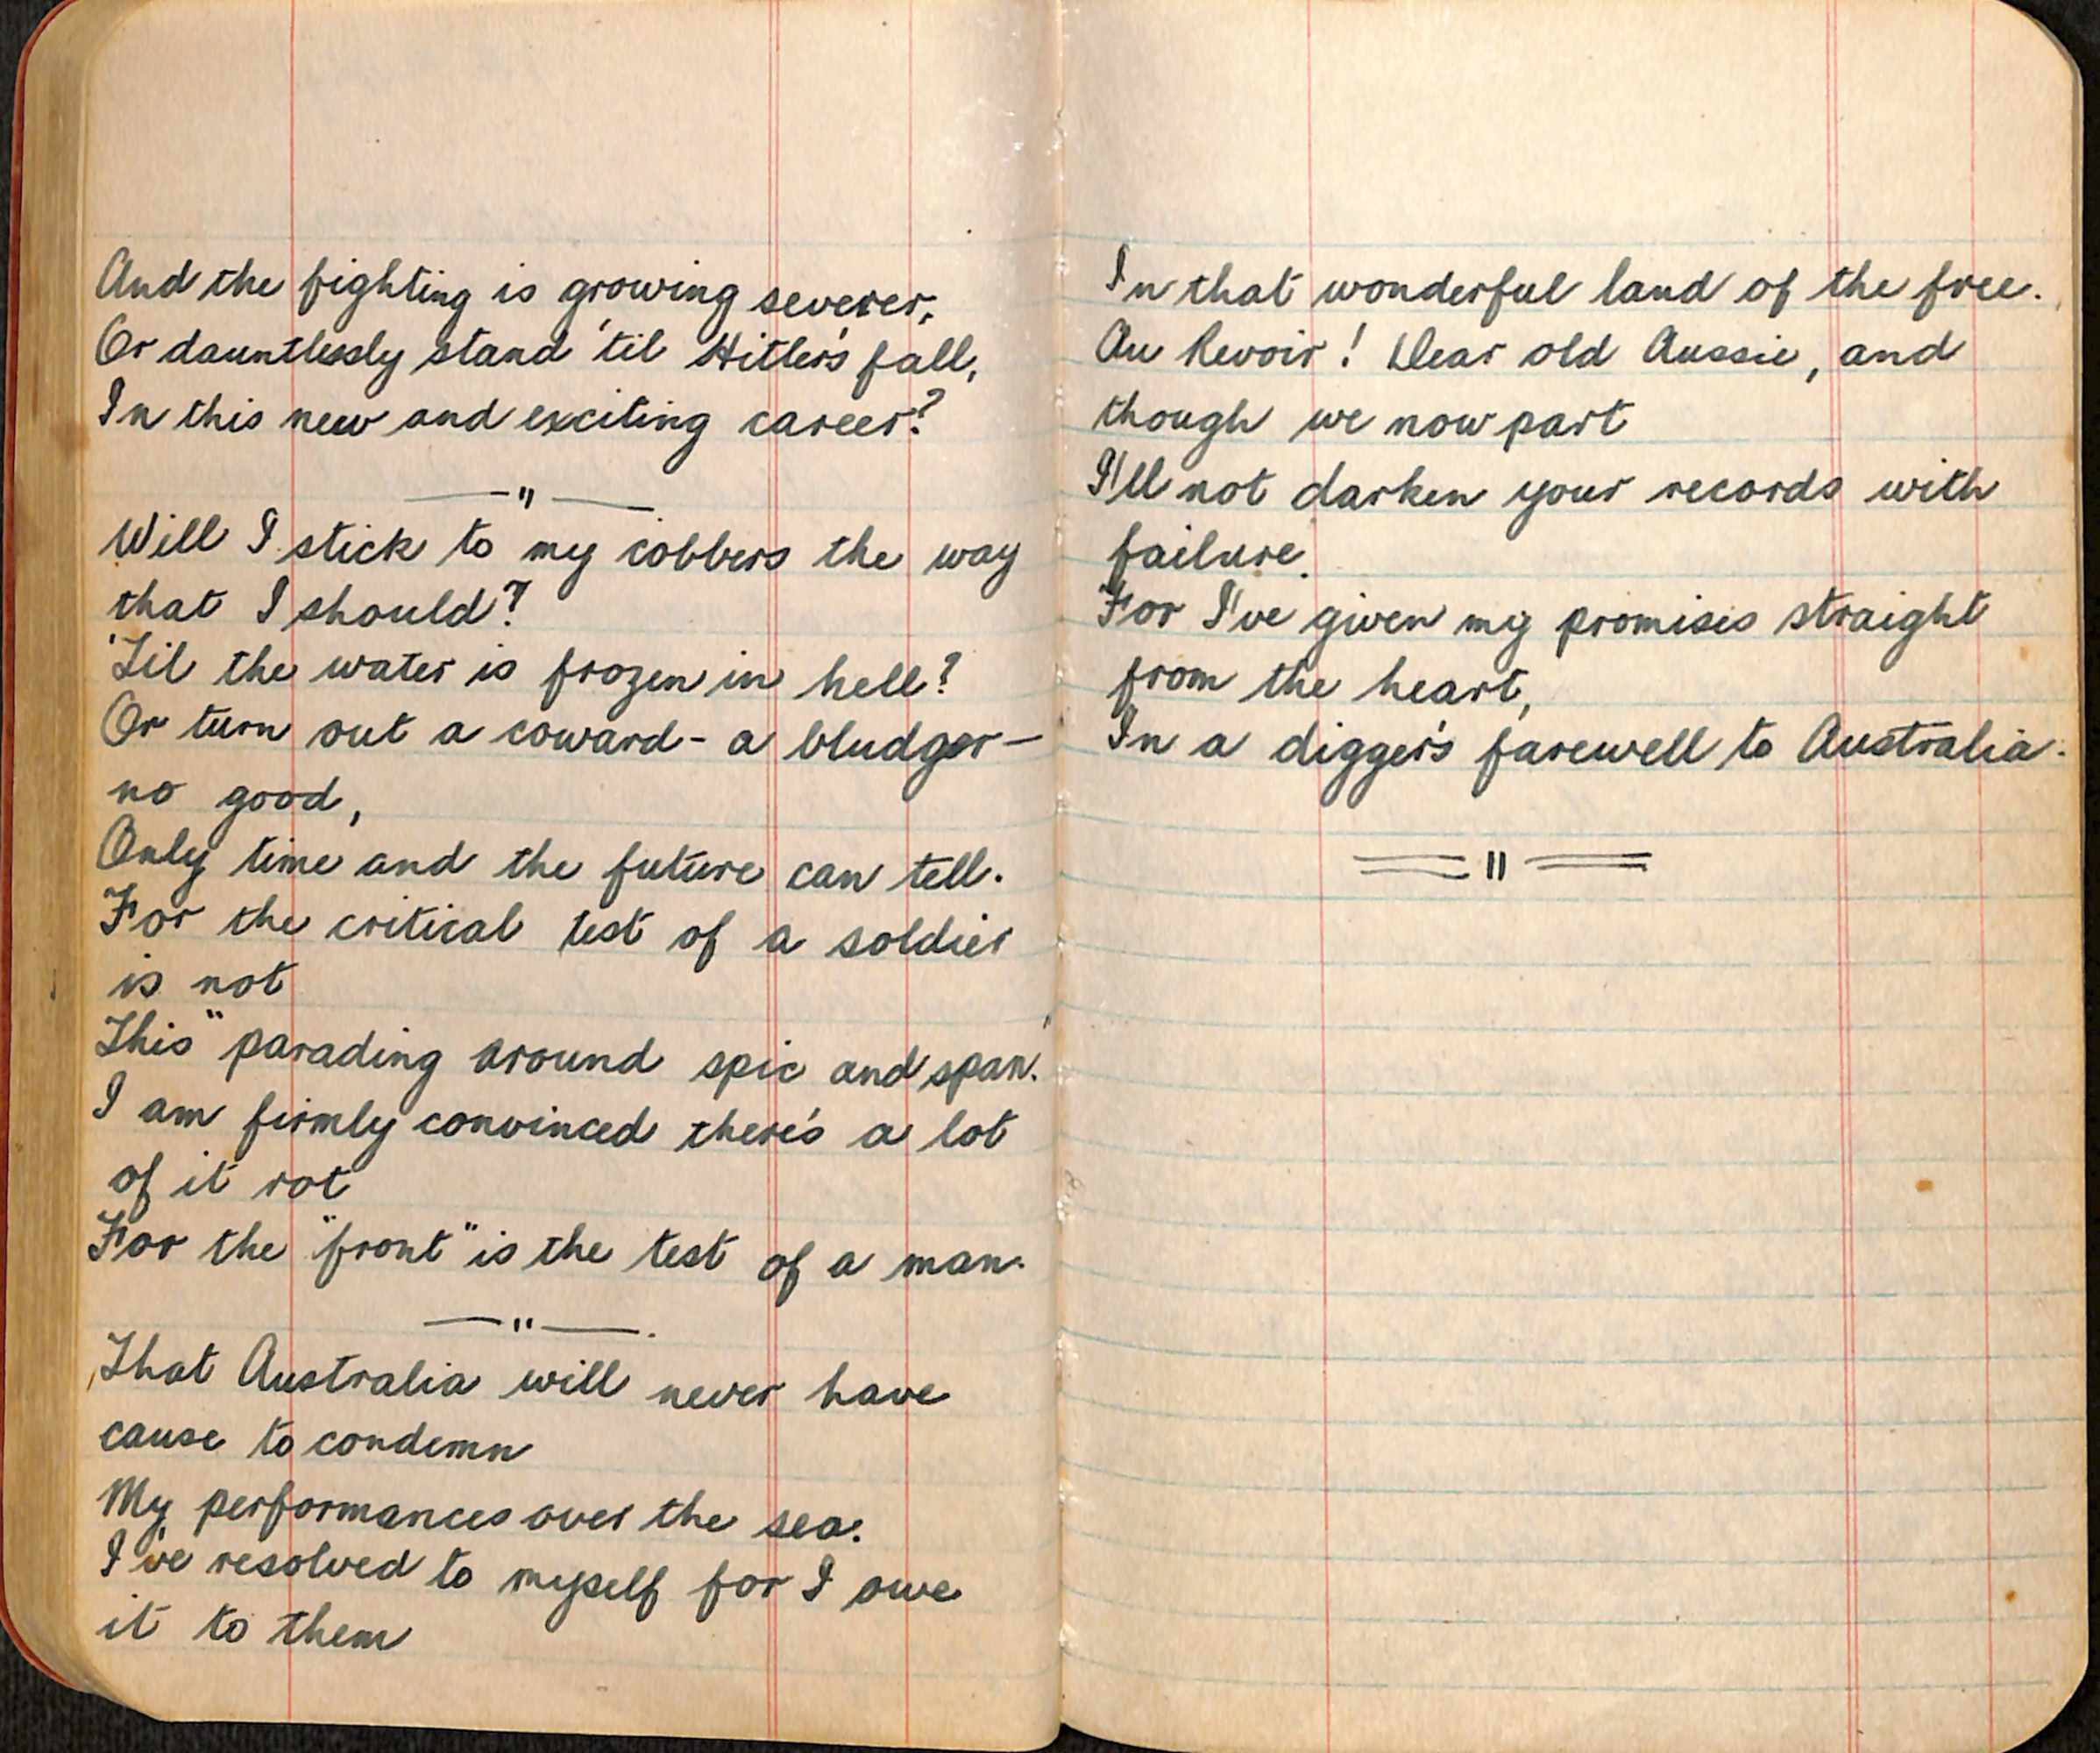 And the fighting is growing severer,
Or dauntlessly stand 'til Hitler's fall,
In this new and exciting career?
— " —
Will I stick to my cobbers the way
that I should?
'Til the water is frozen in hell?
Or turn out a coward - a bludger -
no good,
Only time and the future can tell.
For the critical test of a soldier
is not
This "parading around spic and span."
I am firmly convinced there's a lot
of it rot
For the "front" is the test of a man.
— " —
That Australia will never have
cause to condemn
My performances over the sea.
I've resolved to myself for I owe
it to them
In that wonderful land of the free.
Au Revoir! Dear old Aussie, and
though we now part
I'll not darken your records with
failure.
For I've given my promises straight
from the heart,
In a digger's farewell to Australia.
== " ==